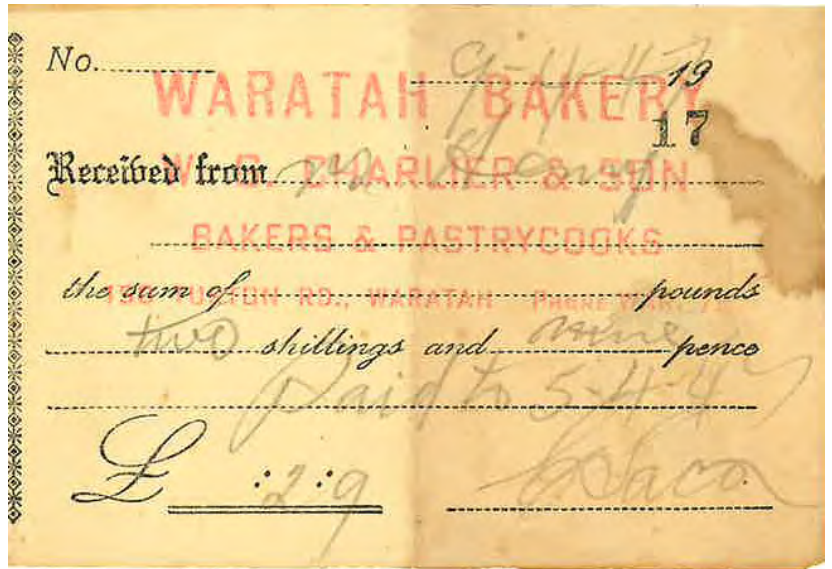 No. 9-4-47 19
WARATAH BAKERY
17
Received from Mr Henry
W. C. CHARLIER & SON
BAKERS & PASTRYCOOKS
the sum of pounds
RD., WARATAH PHONE
two shillings and nine pence
Paid to 5-4-47
£ : 2 : 9